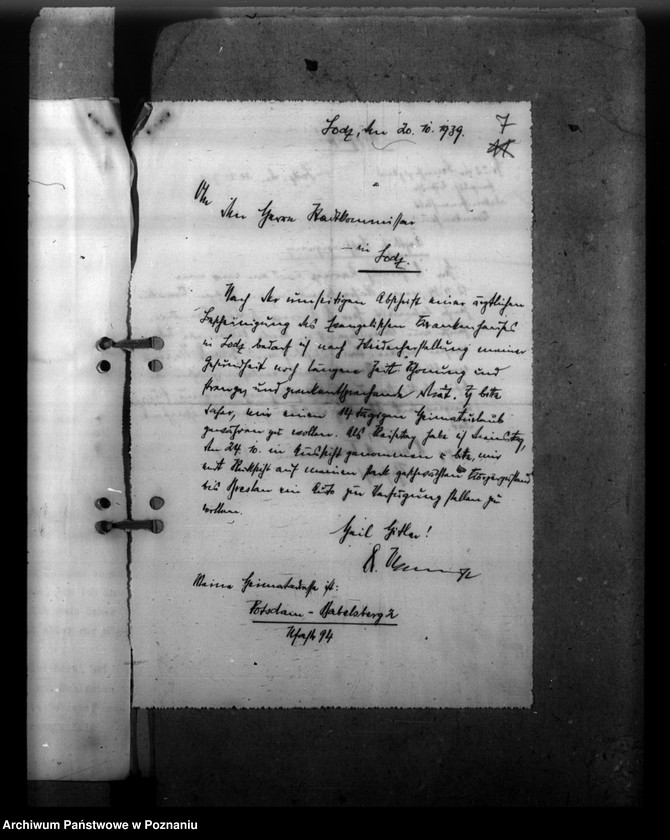 Lodz, den 20. 10. 1939.
7
An
den Herrn Stadtkommissar
in Lodz.
Nach der umseitigen Abschrift einer ärztlichen
Bescheinigung des Evangelischen Krankenhauses
in Lodz bedarf ich nach Wiederherstellung meiner
Gesundheit noch längere Zeit Schonung und
strenge und krankentsprechende Diät. Ich bitte
daher, mir einen 14 tägigen Heimaturlaub
gewähren zu wollen. Als Reisetag habe ich Dienstag,
den 24. 10. in Aussicht genommen u. bitte, mir
mit Rücksicht auf meinen stark geschwächten Körperzustand
bis Breslau ein Auto zur Verfügung stellen zu
wollen.
Heil Hitler!
Meine Heimatadresse ist:
Potsdam - Babelsberg 2
94
Archiwum Państwowe w Poznaniu